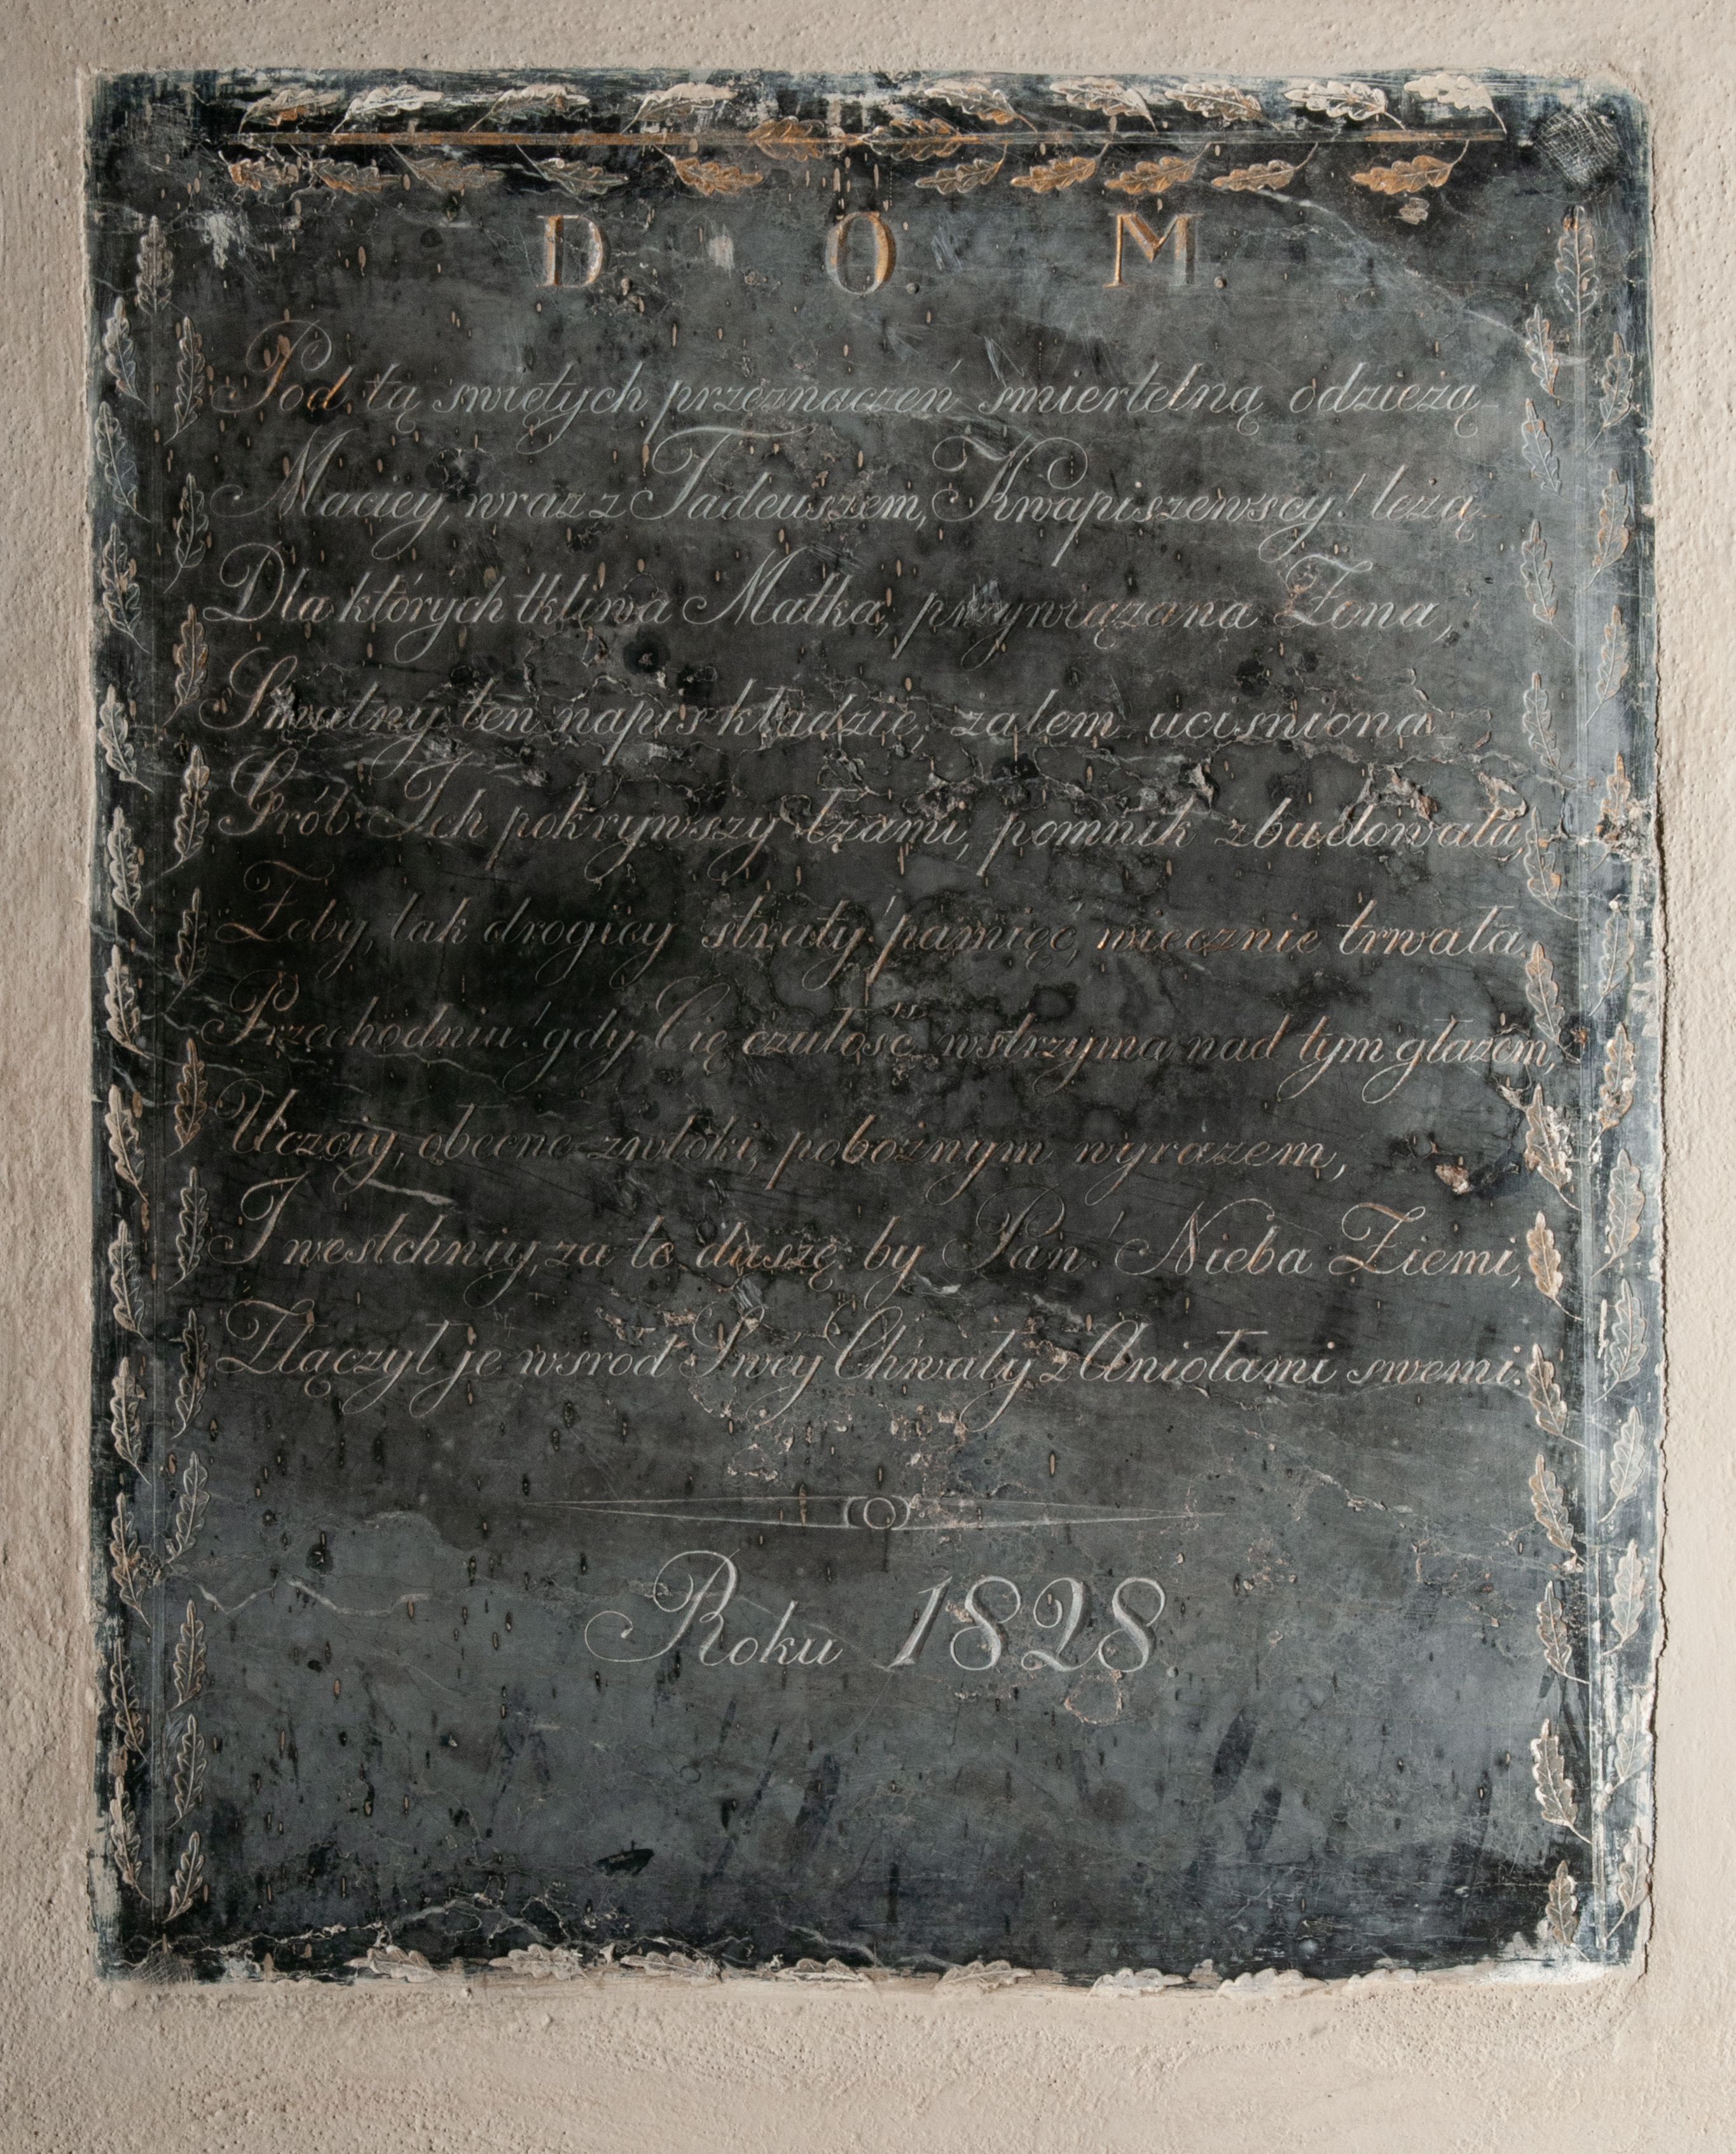 D. O. M.
Pod, tą swiętych przeznaczeń smiertelną odzieżą
Maciey, wraz z Tadeuszem, Kwapiszewscy! leżą.
Dla których tkliwa Matka, przywiązana Żona,
Smutny ten napis kładzie, żalem uciśniona
Grób Ich pokrywszy łzami, pomnik zbudowała,
Żeby, tak drogiey straty! pamięć, wiecznie trwała.
Przechodniu! gdy Cię czułość wstrzyma nad tym głazem,
Uczciy, obecne zwłoki, pobożnym wyrazem,
I westchniy, za te duszę by Pan! Nieba Ziemi,
Złączył je wsrod Swey Chwały z Aniołami swemi.
Roku 1828.